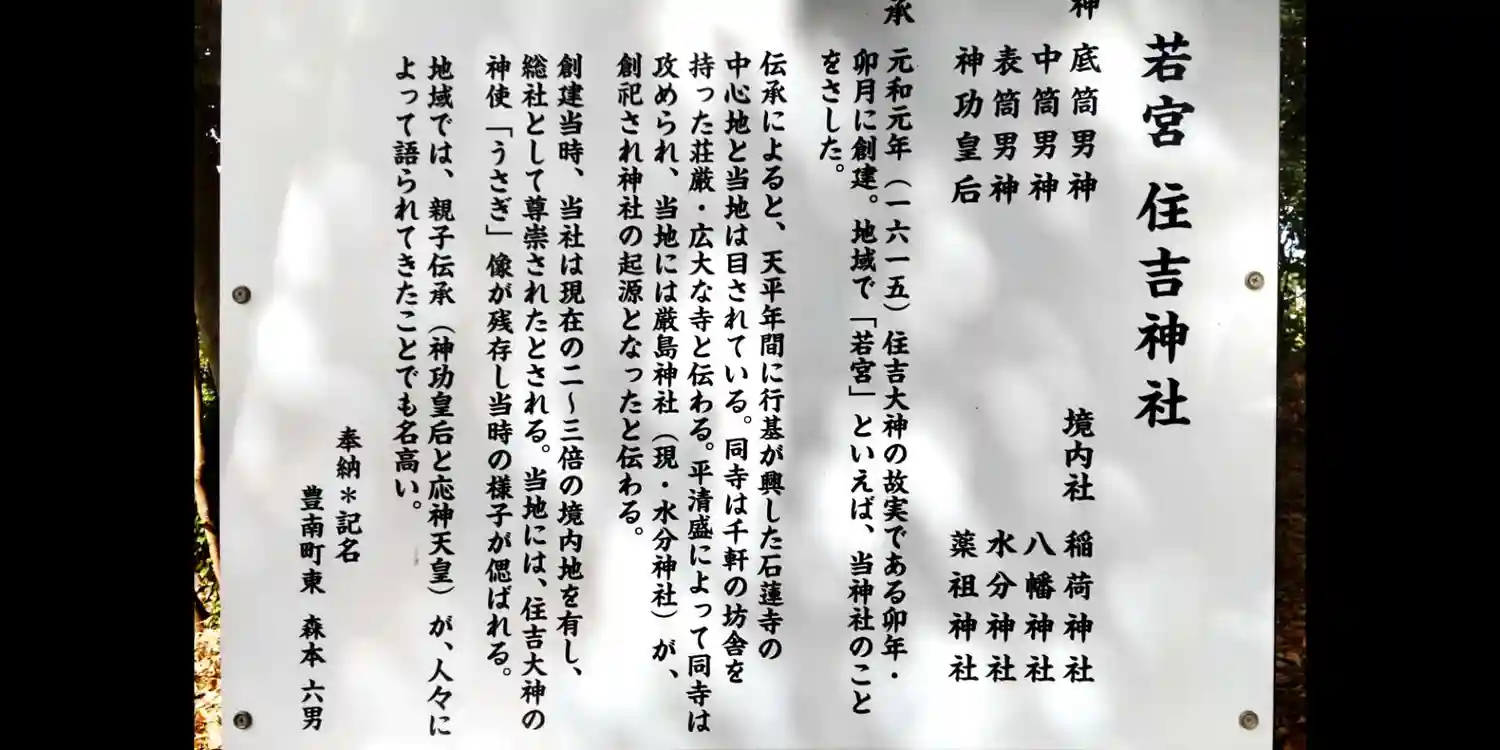 若宮 住吉神社
神 底筒男神
中筒男神
表筒男神
神功皇后
境内社 稲荷神社
八幡神社
水分神社
薬祖神社
承 元和元年（一六一五）住吉大神の故実である卯年・
卯月に創建。地域で「若宮」といえば、当神社のこと
をさした。
伝承によると、天平年間に行基が興した石蓮寺の
中心地と当地は目されている。同寺は千軒の坊舎を
持った荘厳・広大な寺と伝わる。平清盛によって同寺は
攻められ、当地には厳島神社（現・水分神社）が、
創祀され神社の起源となったと伝わる。
創建当時、当社は現在の二～三倍の境内地を有し、
総社として尊崇されたとされる。当地には、住吉大神の
神使「うさぎ」像が残存し当時の様子が偲ばれる。
地域では、親子伝承（神功皇后と応神天皇）が、人々に
よって語られてきたことでも名高い。
奉納＊記名
豊南町東 森本 六男